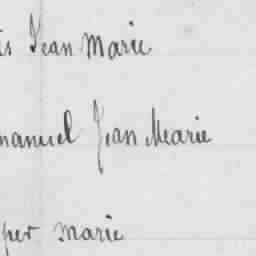 is Jean Marie
manuel Jean Marie
per marie